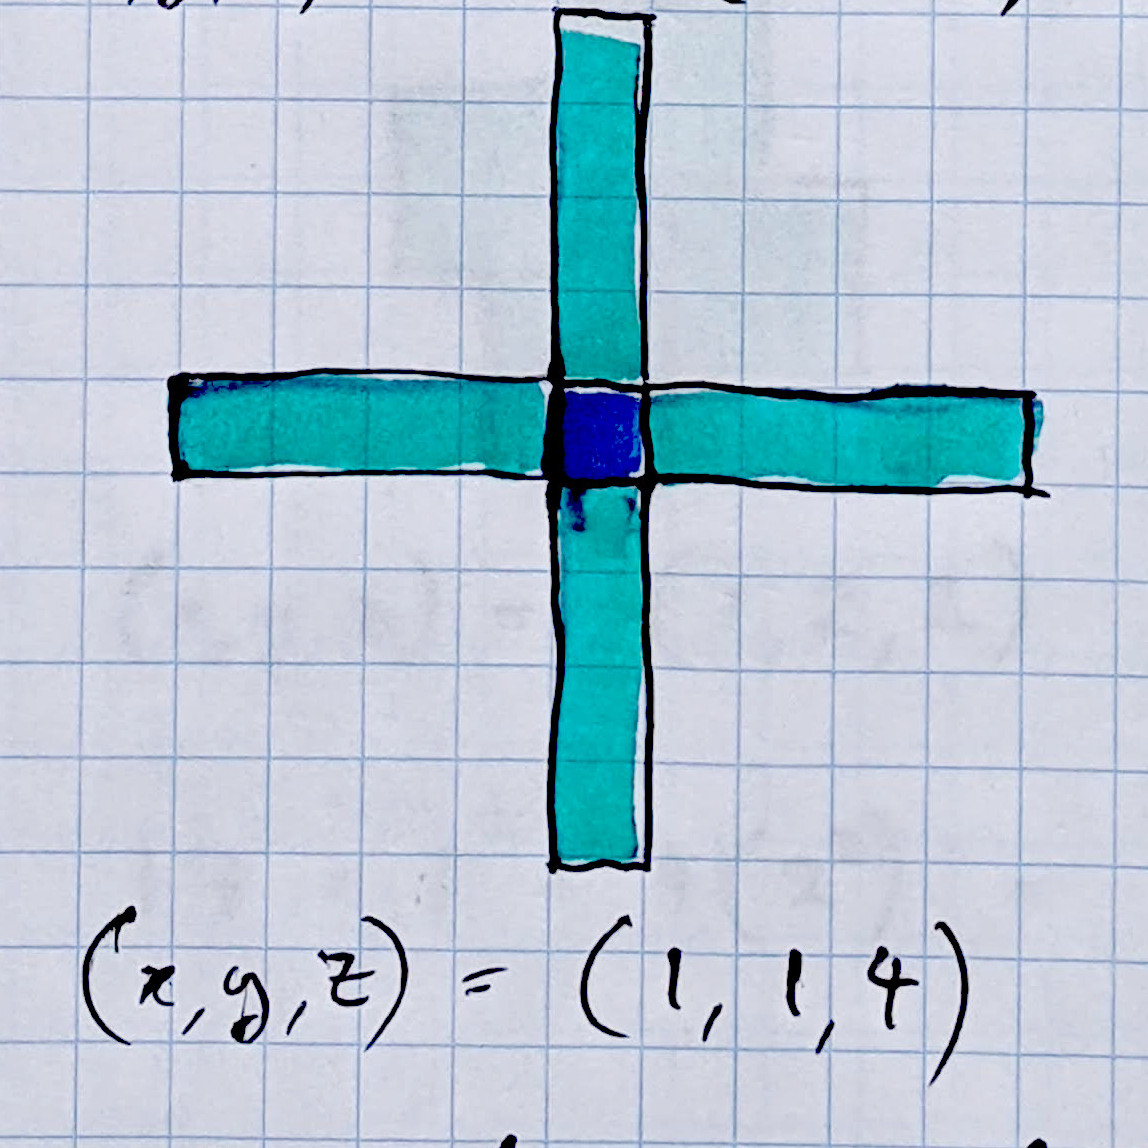 (x, y, z) = (1, 1, 4)